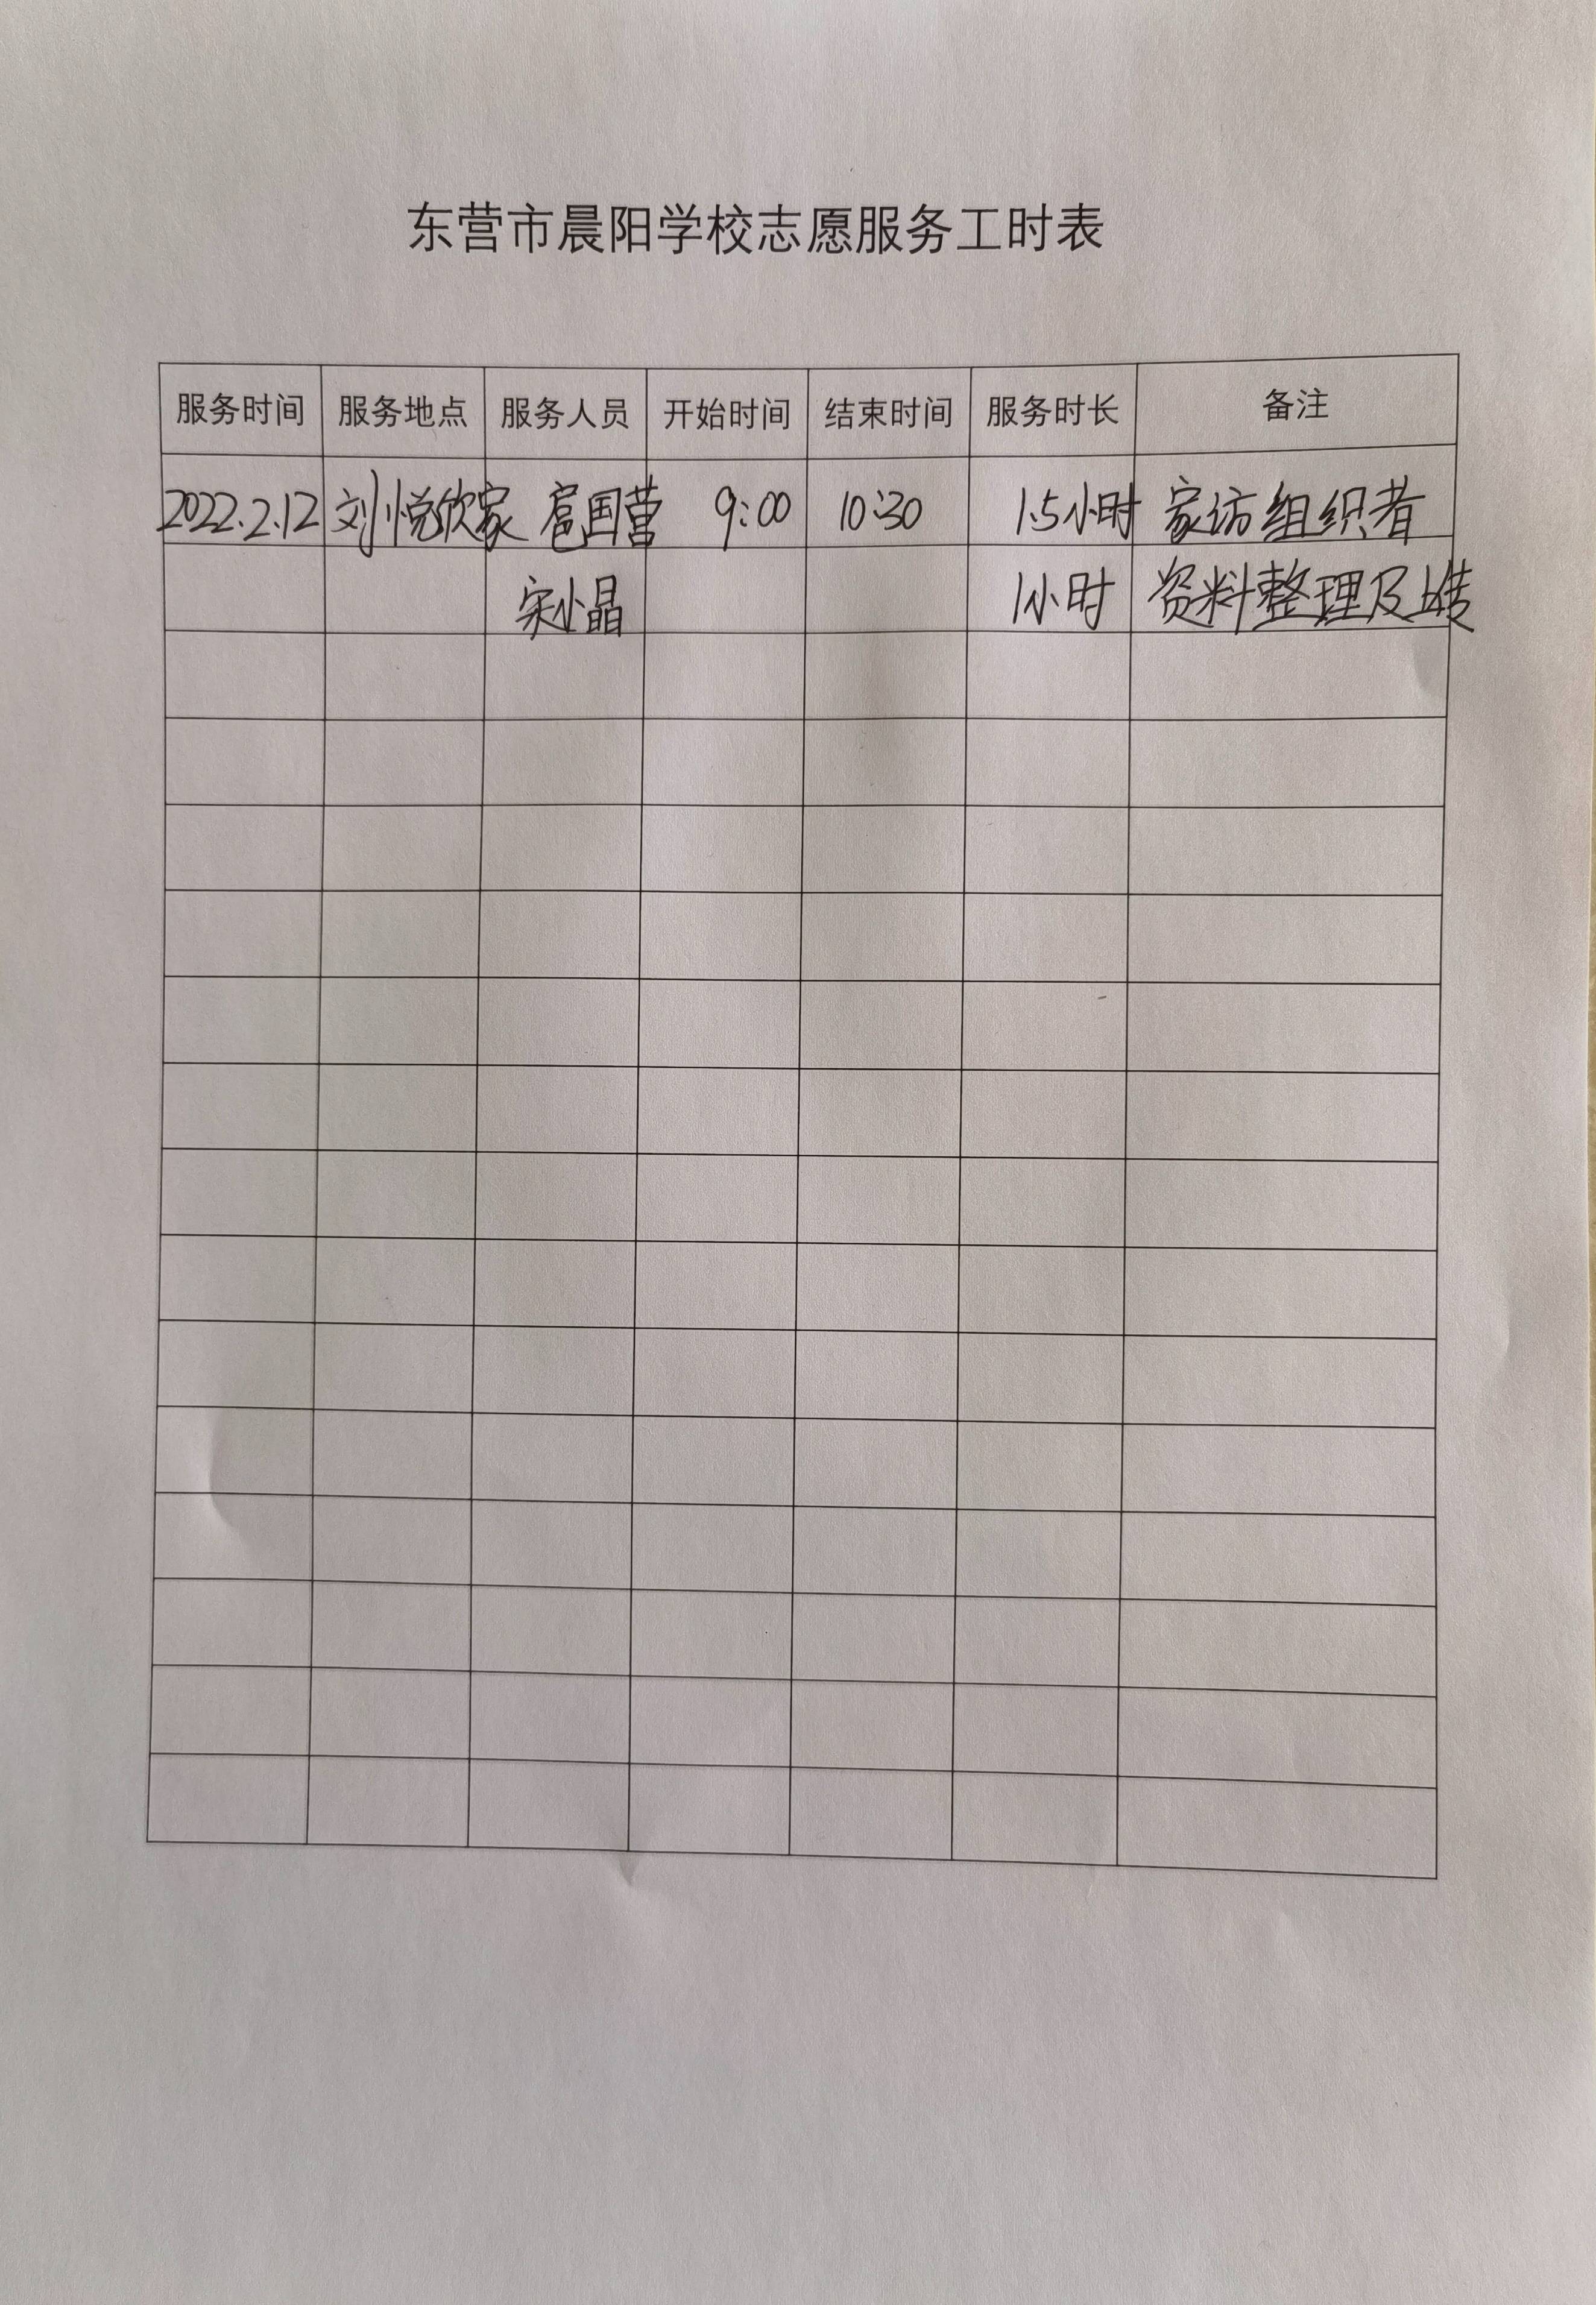 东营市晨阳学校志愿服务工时表
服务时间 服务地点 服务人员 开始时间 结束时间 服务时长 备注
2022.2.12 刘悦欣家 扈国营 9:00 10:30 1.5小时 家访组织者
宋小晶 1小时 资料整理及上传